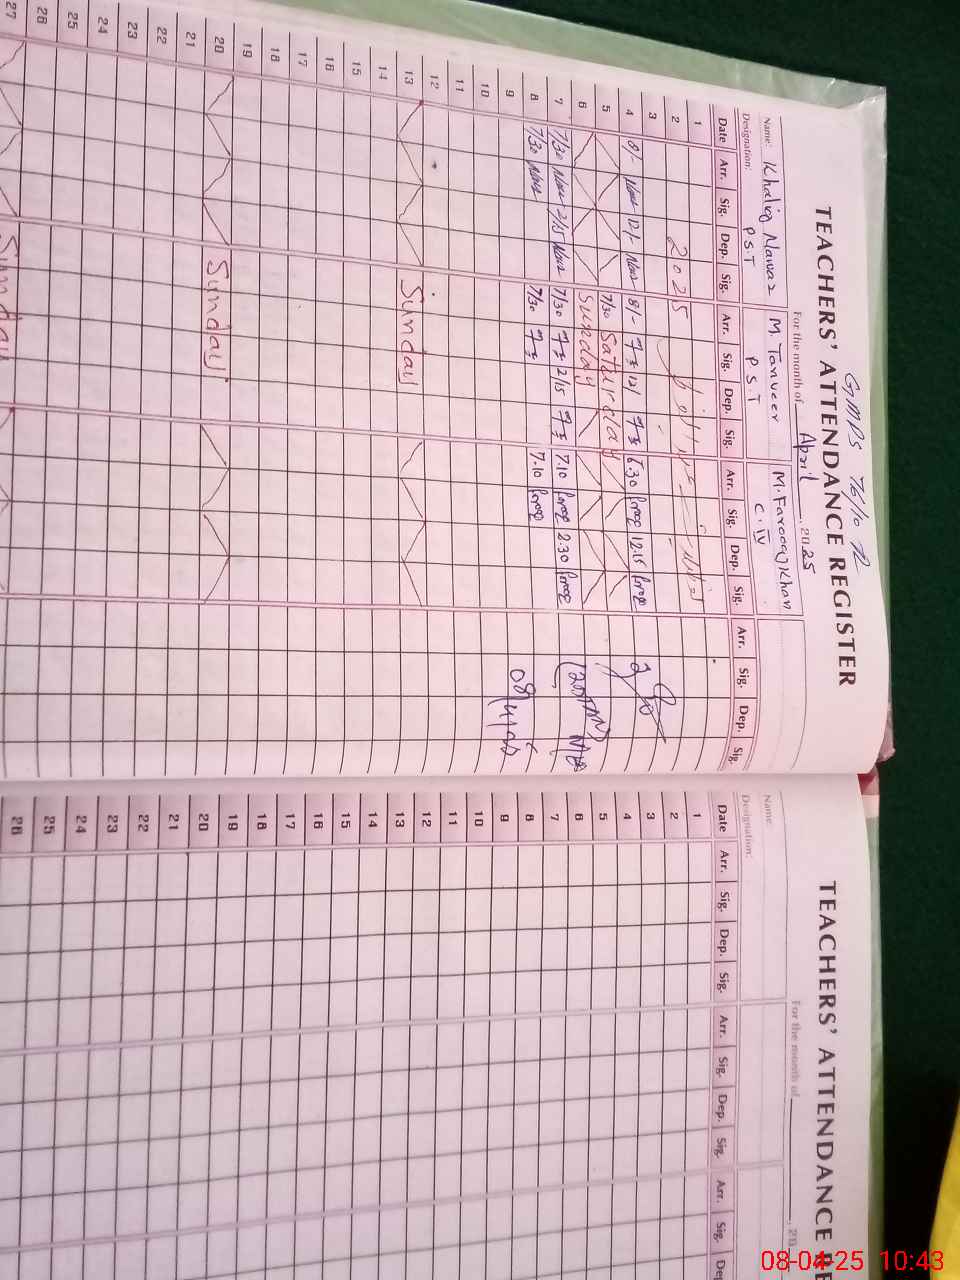 GMPS 76/10 R
TEACHERS' ATTENDANCE REGISTER
For the month of April, 2025
Name: Khaliq Nawaz M. Tanveer M. Farooq Khan
Designation: P.S.T P S T C. IV
Date Arr. Sig. Dep. Sig. Arr. Sig. Dep. Sig. Arr. Sig. Dep. Sig. Arr. Sig. Dep. Sig.
1
2 2025
3
4 8/- Nawaz 12/- Nawaz 8/- 12/ 6.30 Farooq 12.15 Farooq
5 7/30 Saturday
6 Sunday
7 7/30 Nawaz 2/15 Nawaz 7/30 2/15 7.10 Farooq 2.30 Farooq
8 7/30 Nawaz 7/30 7.10 Farooq
9
10
11
12
13 Sunday
14
15
16
17
18
19
20 Sunday
21
22
23
24
25
26
27 Sunday
TEACHERS' ATTENDANCE RE
For the month of , 20
Name:
Designation:
Date Arr. Sig. Dep. Sig. Arr. Sig. Dep. Sig. Arr. Sig. De
1
2
3
4
5
6
7
8
9
10
11
12
13
14
15
16
17
18
19
20
21
22
23
24
25
26
08-04-25 10:43